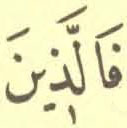 فَالَّذِينَ